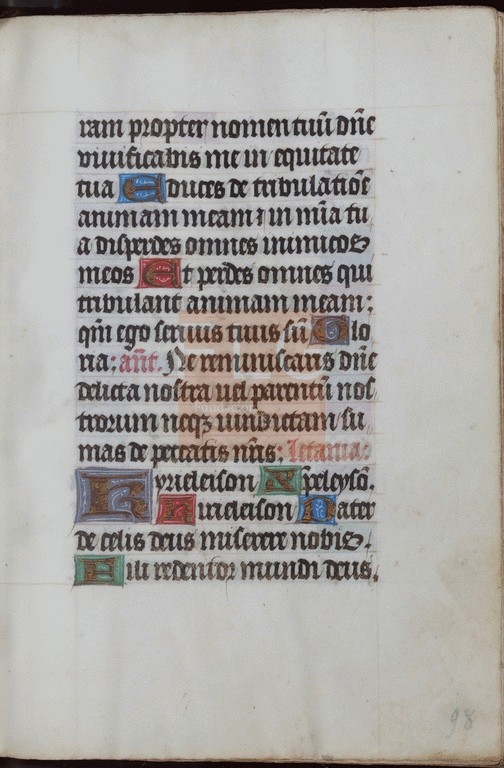 ram propter nomen tuū dn̄e
viuificabis me in equitate
tua Educes de tribulatiōe
animam meam ⁊ in mīa tu
a disperdes omnes inimicos
meos Et perdes omnes qui
tribulant animam meam;
qm̄ ego seruus tuus sū Glo
ria; an̄t. Ne reminiscaris dn̄e
delicta nostra uel parentū nos
trorum neqꝫ uindictam su
mas de peccatis nr̄is; letania:
Kyrieleison Xpeleysō.
Kirieleison Pater
de celis deus miserere nobis.
Fili redemtor mundi deus.
98